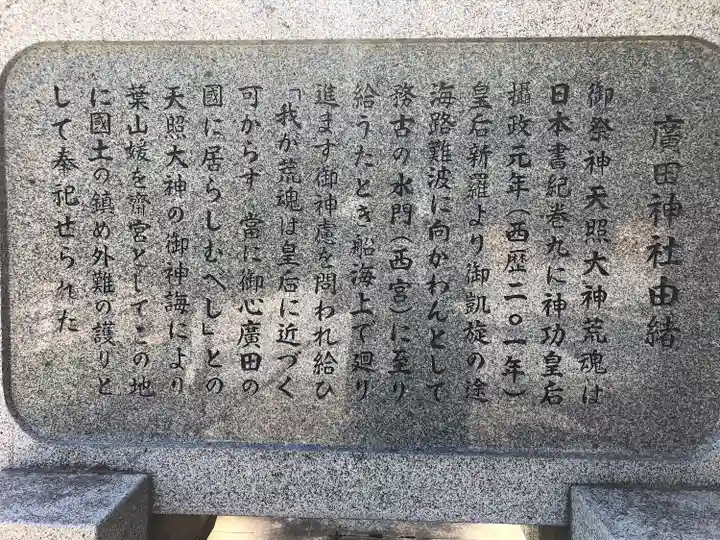 廣田神社由緒
御祭神天照大神荒魂は
日本書紀巻九に神功皇后
攝政元年(西歴二〇一年)
皇后新羅より御凱旋の途
海路難波に向かわんとして
務古の水門(西宮)に至り
給うたとき船海上で廻り
進まず御神慮を問われ給ひ
「我が荒魂は皇后に近づく
可からず 當に御心廣田の
國に居らしむべし」との
天照大神の御神誨により
葉山媛を齋宮としてこの地
に國土の鎮め外難の護りと
して奉祀せられた